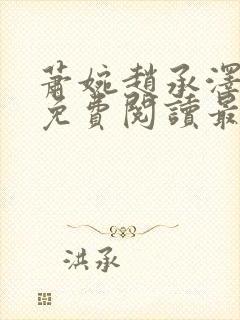 蕭婉趙承澤
免費閱讀最
洪承